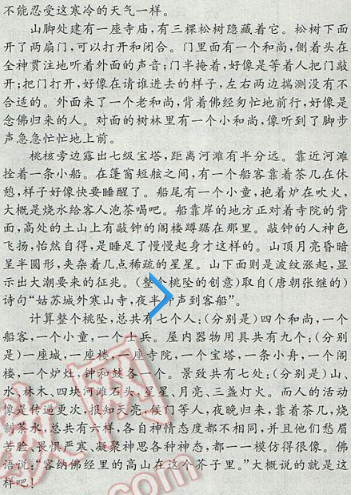 不能忍受这寒冷的天气一样。
山脚处建有一座寺庙，有三棵松树隐藏着它。松树下面
开了两扇门，可以打开和闭合。门里面有一个和尚，侧着头在
全神贯注地听着外面的声音；门半掩着，好像是等着人把门敲
开；把门打开，好像在请谁进去的样子，左右两边揣测没有不
合适的。外面来了一个老和尚，背着佛经匆忙地前行，好像是
念佛归来的人。对面的树林里有一个小和尚，像听到了脚步
声急急忙忙地上前。
桃核旁边露出七级宝塔，距离河滩有半分远。靠近河滩
拴着一条小船。在篷窗短舷之间，有一个船客靠着茶几在休
憩，样子好像快要睡醒了。船尾有一个小童，抱着炉在吹火，
大概是烧水给客人泡茶喝吧。船靠岸的地方正对着寺院的背
面，高处的土山上有敲钟的阁楼蹲踞在那里。敲钟的人神色
飞扬，怡然自得，是睡足了慢慢起身才这样的。山顶月亮昏暗
呈半圆形，夹杂着几点稀疏的星星。山下面则是波纹涨起，显
示出大潮要来的征兆。(整个桃坠的创意)取自(唐朝张继的)
诗句“姑苏城外寒山寺，夜半钟声到客船”。
计算整个桃坠，总共有七个人；(分别是)四个和尚，一个
船客，一个小童，一个士兵。屋内器物用具共有九个；(分别
是)一座城，一座楼，一座寺院，一个宝塔，一条小舟，一个阁
楼，一个炉灶，钟和鼓各一个。景致共有七处；(分别是)山、
水、林木、四块河滩石头，星星、月亮、三盏灯火。而人的活动
像是传递更次，报知天亮，候门等人，夜晚归来，靠着茶几，烧
制茶水，总共有六样，各自神情态度都不相同，并且他们愁眉
苦脸、畏惧严寒、凝聚神思各种神态，都一一模仿得很像。佛
语说：“容纳佛经里的高山在这个芥子里。”大概说的就是这
样吧！